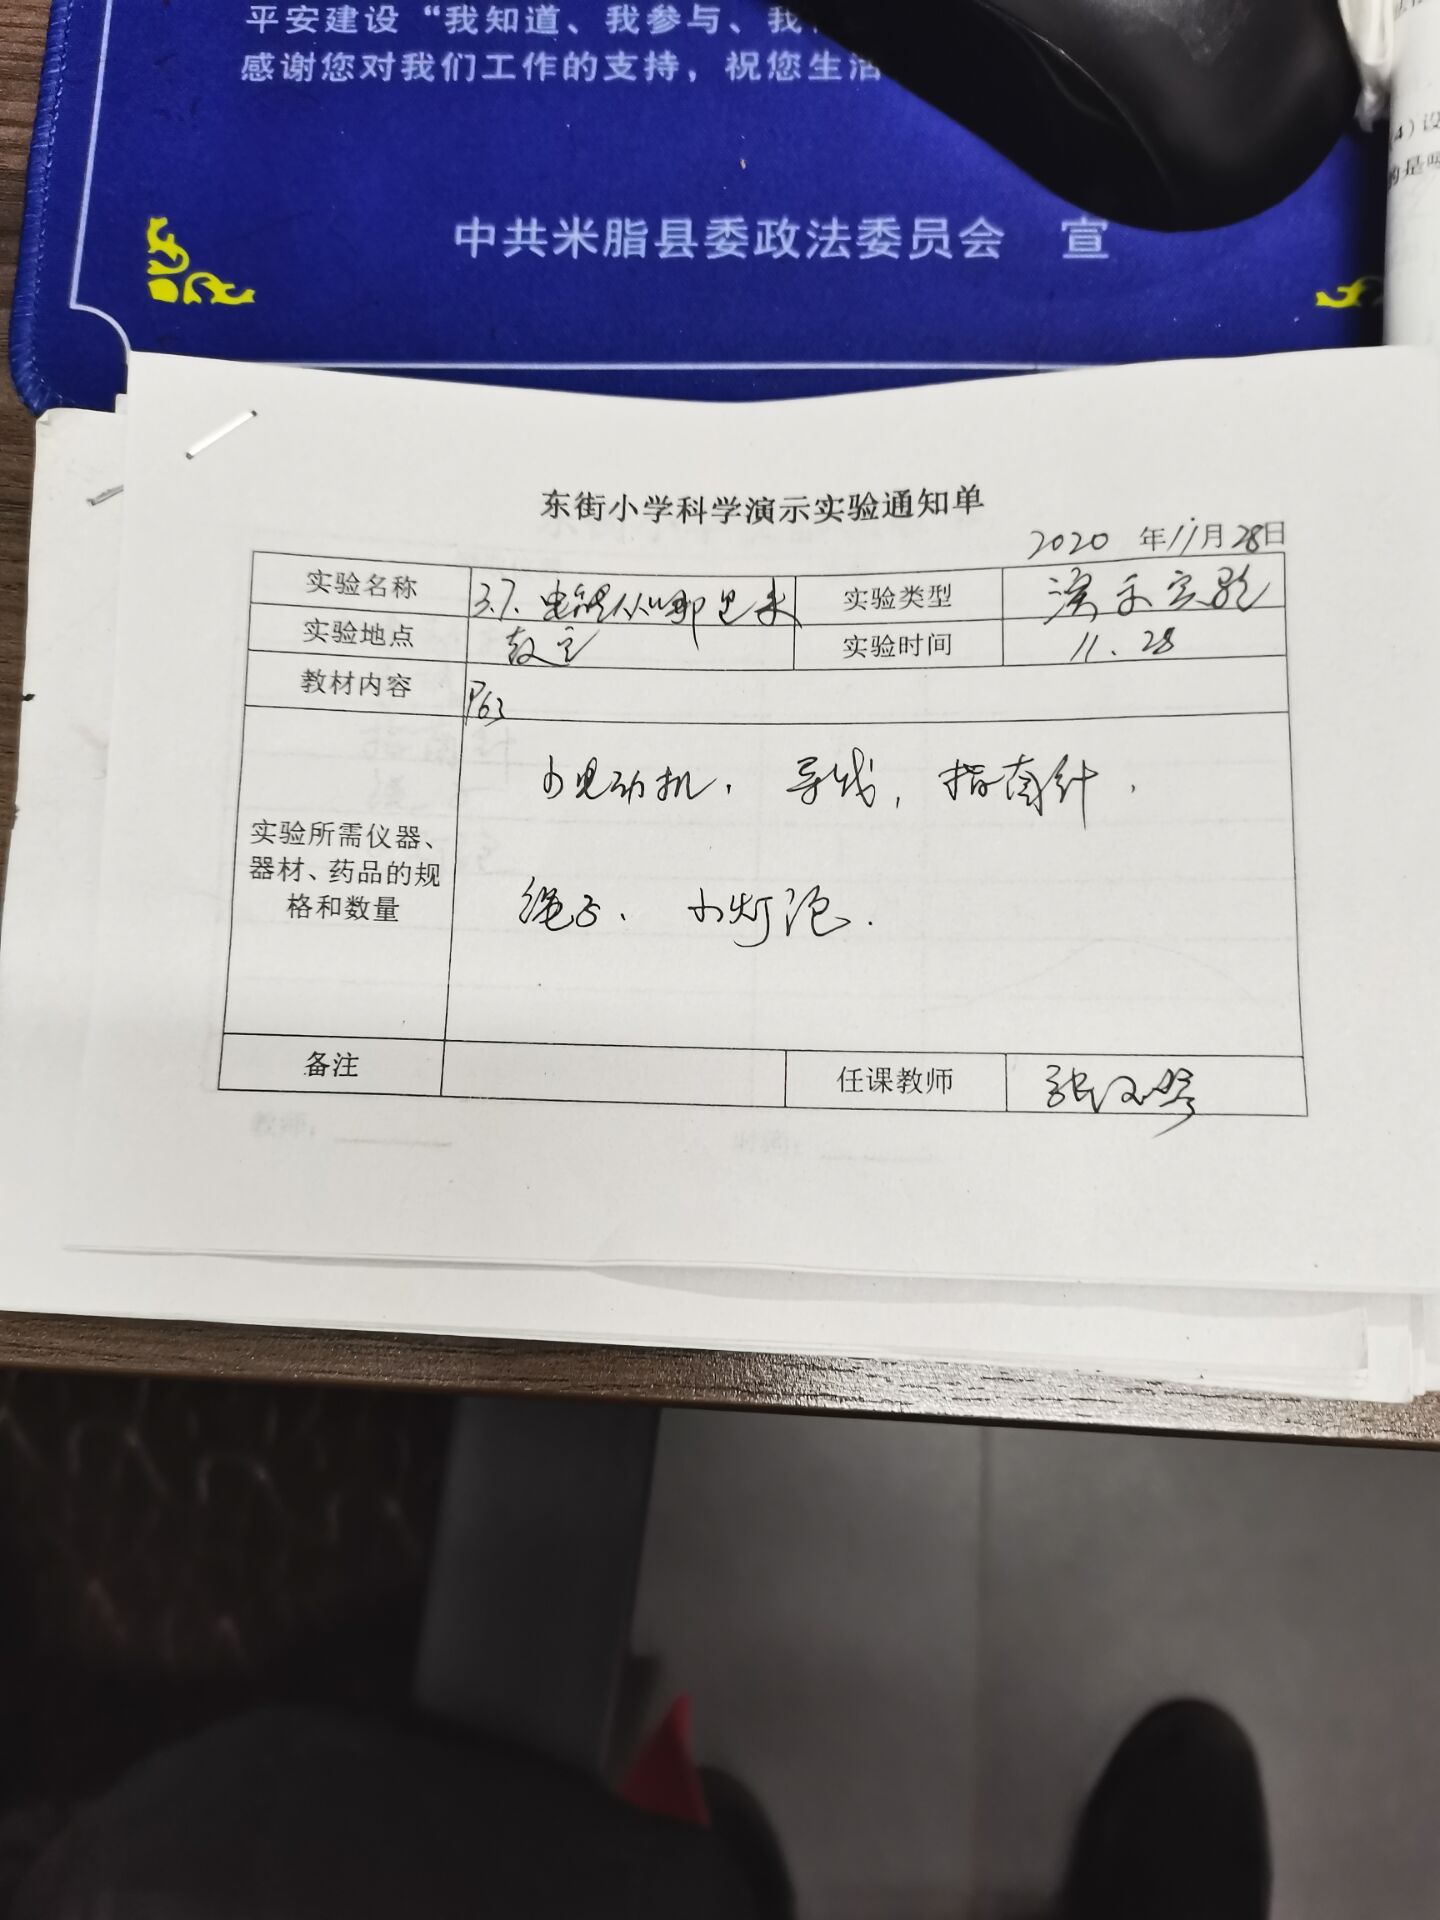 平安建设“我知道、我参与、我
感谢您对我们工作的支持，祝您生活
中共米脂县委政法委员会 宣
4）设
的是
东街小学科学演示实验通知单
2020 年11月28日
实验名称 3.7.电能从哪里来 实验类型 演示实验
实验地点 教室 实验时间 11.28
教材内容 P63
小电动机、导线，指南针，
实验所需仪器、
器材、药品的规
格和数量
绳子、小灯泡.
备注 任课教师 张
教师：